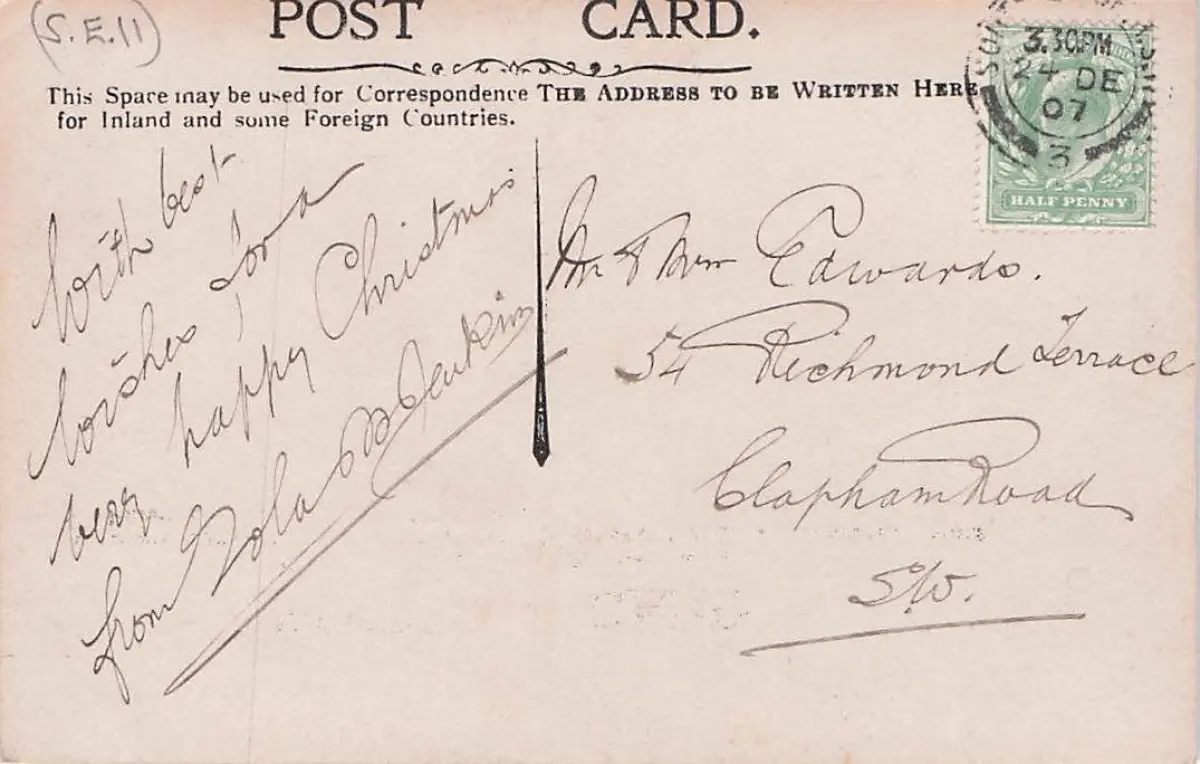 (S.E.11)
POST CARD.
This Space may be used for Correspondence
for Inland and some Foreign Countries.
THE ADDRESS TO BE WRITTEN HERE
3.30PM
24 DE
07
3
HALF PENNY
With best
wishes for a
very happy Christmas
from Jenkins
Mr & Mrs Edwards.
54 Richmond Terrace
Clapham Road
S.W.